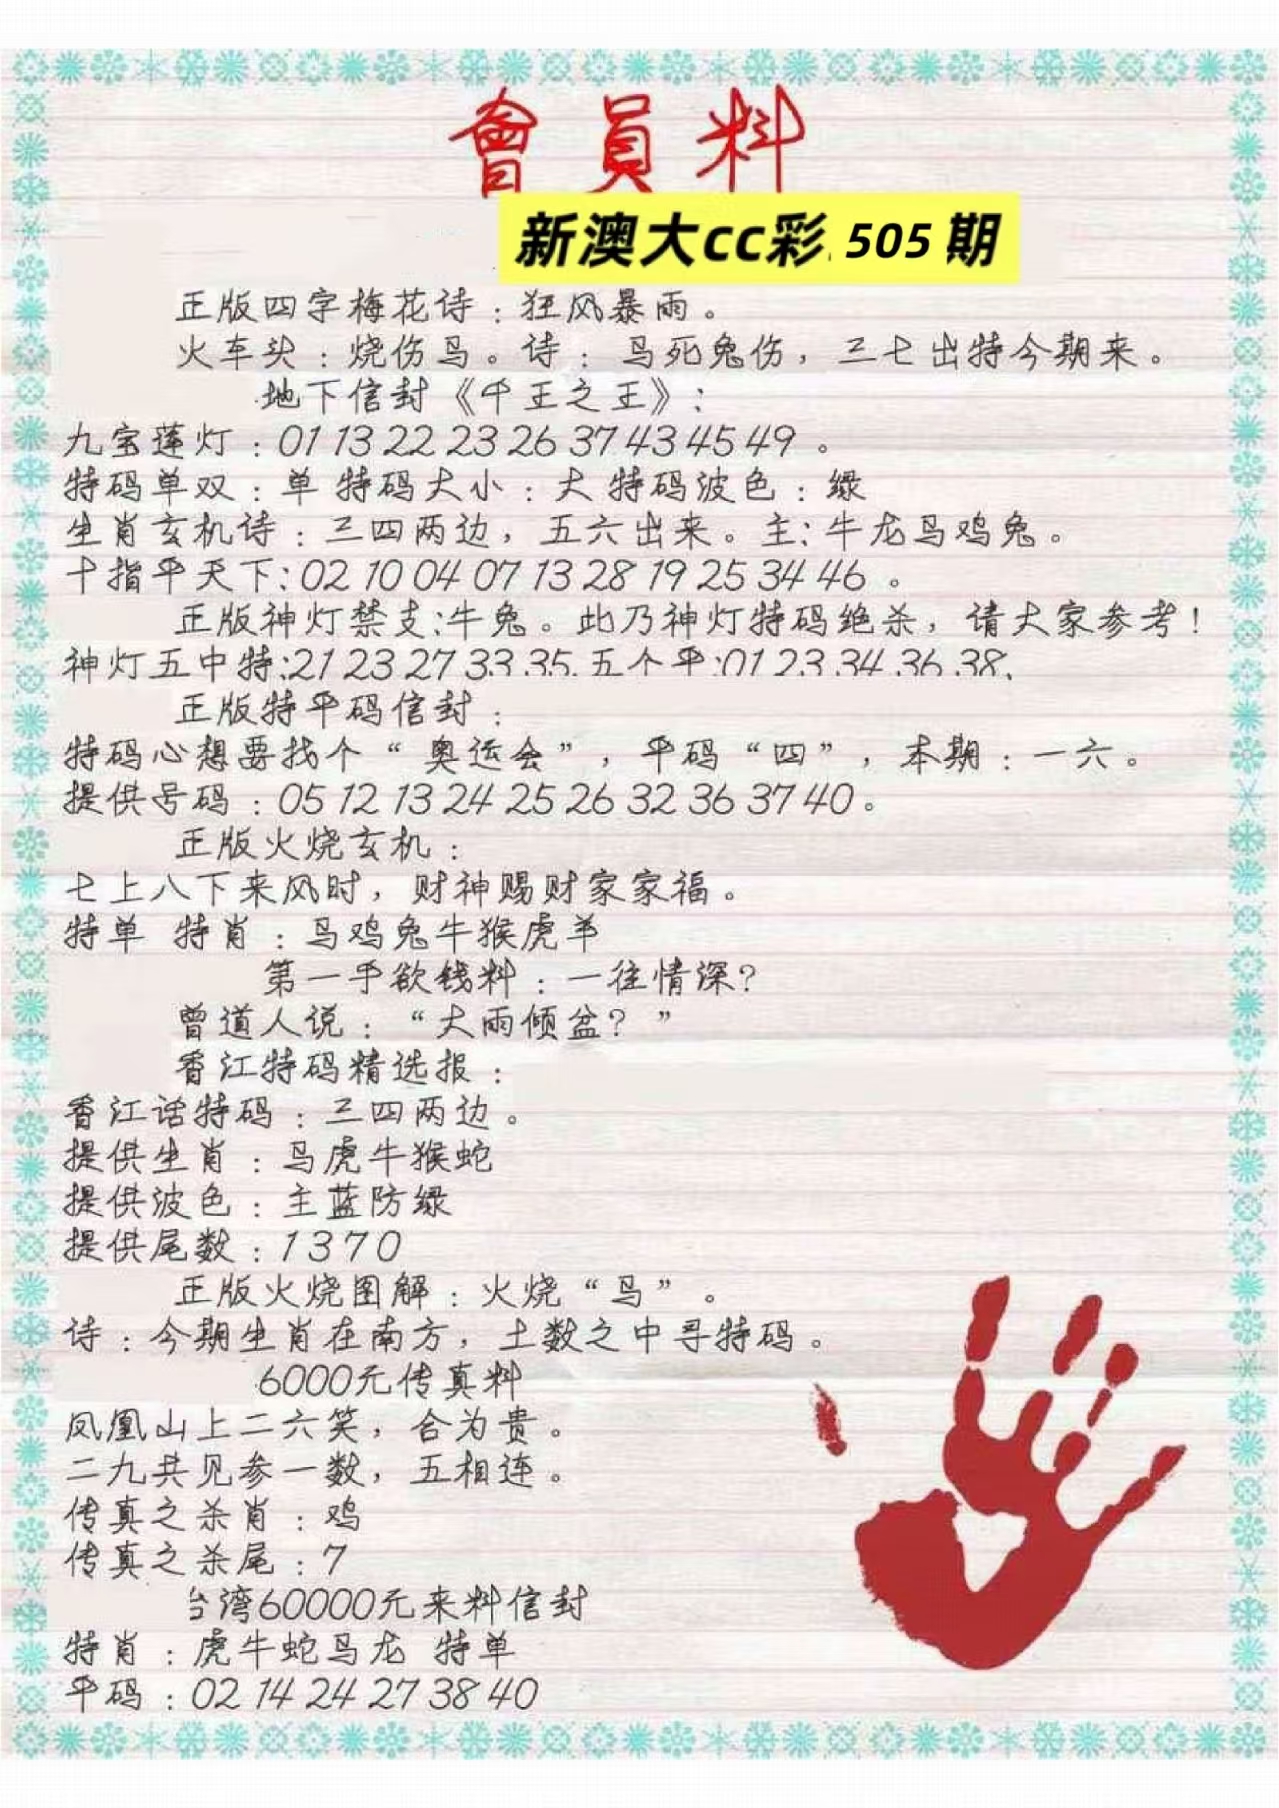 會員料
新澳大cc彩 505期
正版四字梅花诗：狂风暴雨。
火车头：烧伤马。诗：马死兔伤，三七出特今期来。
地下信封《千王之王》：
九宝莲灯：01 13 22 23 26 37 43 45 49 。
特码单双：单 特码大小：大 特码波色：绿
生肖玄机诗：三四两边，五六出来。主：牛龙马鸡兔。
十指平天下：02 10 04 07 13 28 19 25 34 46 。
正版神灯禁支：牛兔。此乃神灯特码绝杀，请大家参考！
神灯五中特：21 23 27 33 35. 五个平：01 23 34 36 38.
正版特平码信封：
特码心想要找个“奥运会”，平码“四”，本期：一六。
提供号码：05 12 13 24 25 26 32 36 37 40。
正版火烧玄机：
七上八下来风时，财神赐财家家福。
特单 特肖：马鸡兔牛猴虎羊
第一手欲钱料：一往情深？
曾道人说：“大雨倾盆？”
香江特码精选报：
香江话特码：三四两边。
提供生肖：马虎牛猴蛇
提供波色：主蓝防绿
提供尾数：1 3 7 0
正版火烧图解：火烧“马”。
诗：今期生肖在南方，土数之中寻特码。
6000元传真料
凤凰山上二六笑，合为贵。
二九共见参一数，五相连。
传真之杀肖：鸡
传真之杀尾：7
台湾60000元来料信封
特肖：虎牛蛇马龙 特单
平码：02 14 24 27 38 40